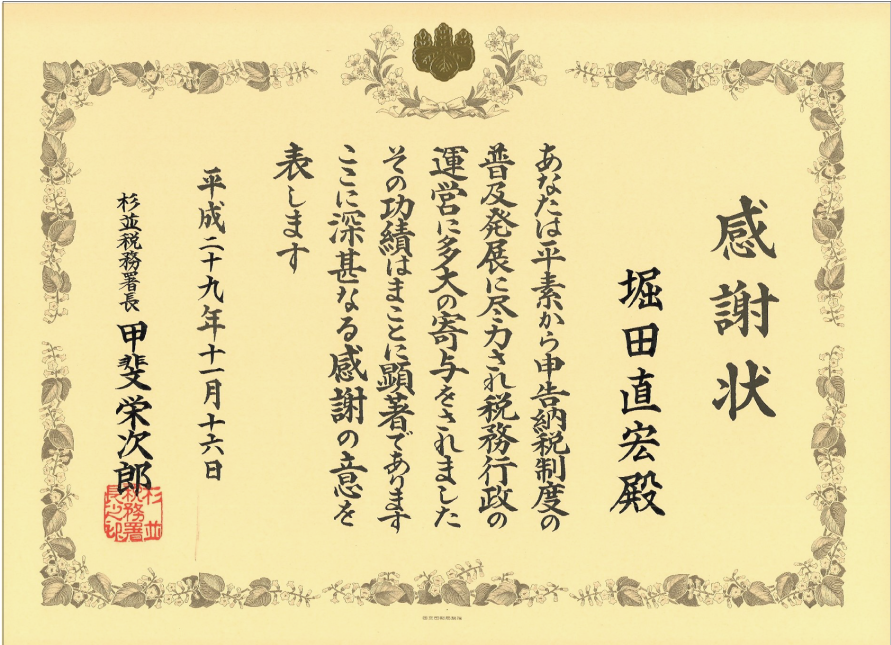 感謝状
堀田直宏殿
あなたは平素から申告納税制度の
普及発展に尽力され税務行政の
運営に多大の寄与をされました
その功績はまことに顕著であります
ここに深甚なる感謝の意を
表します
平成二十九年十一月十六日
杉並税務署長 甲斐栄次郎
杉並税務署長之印